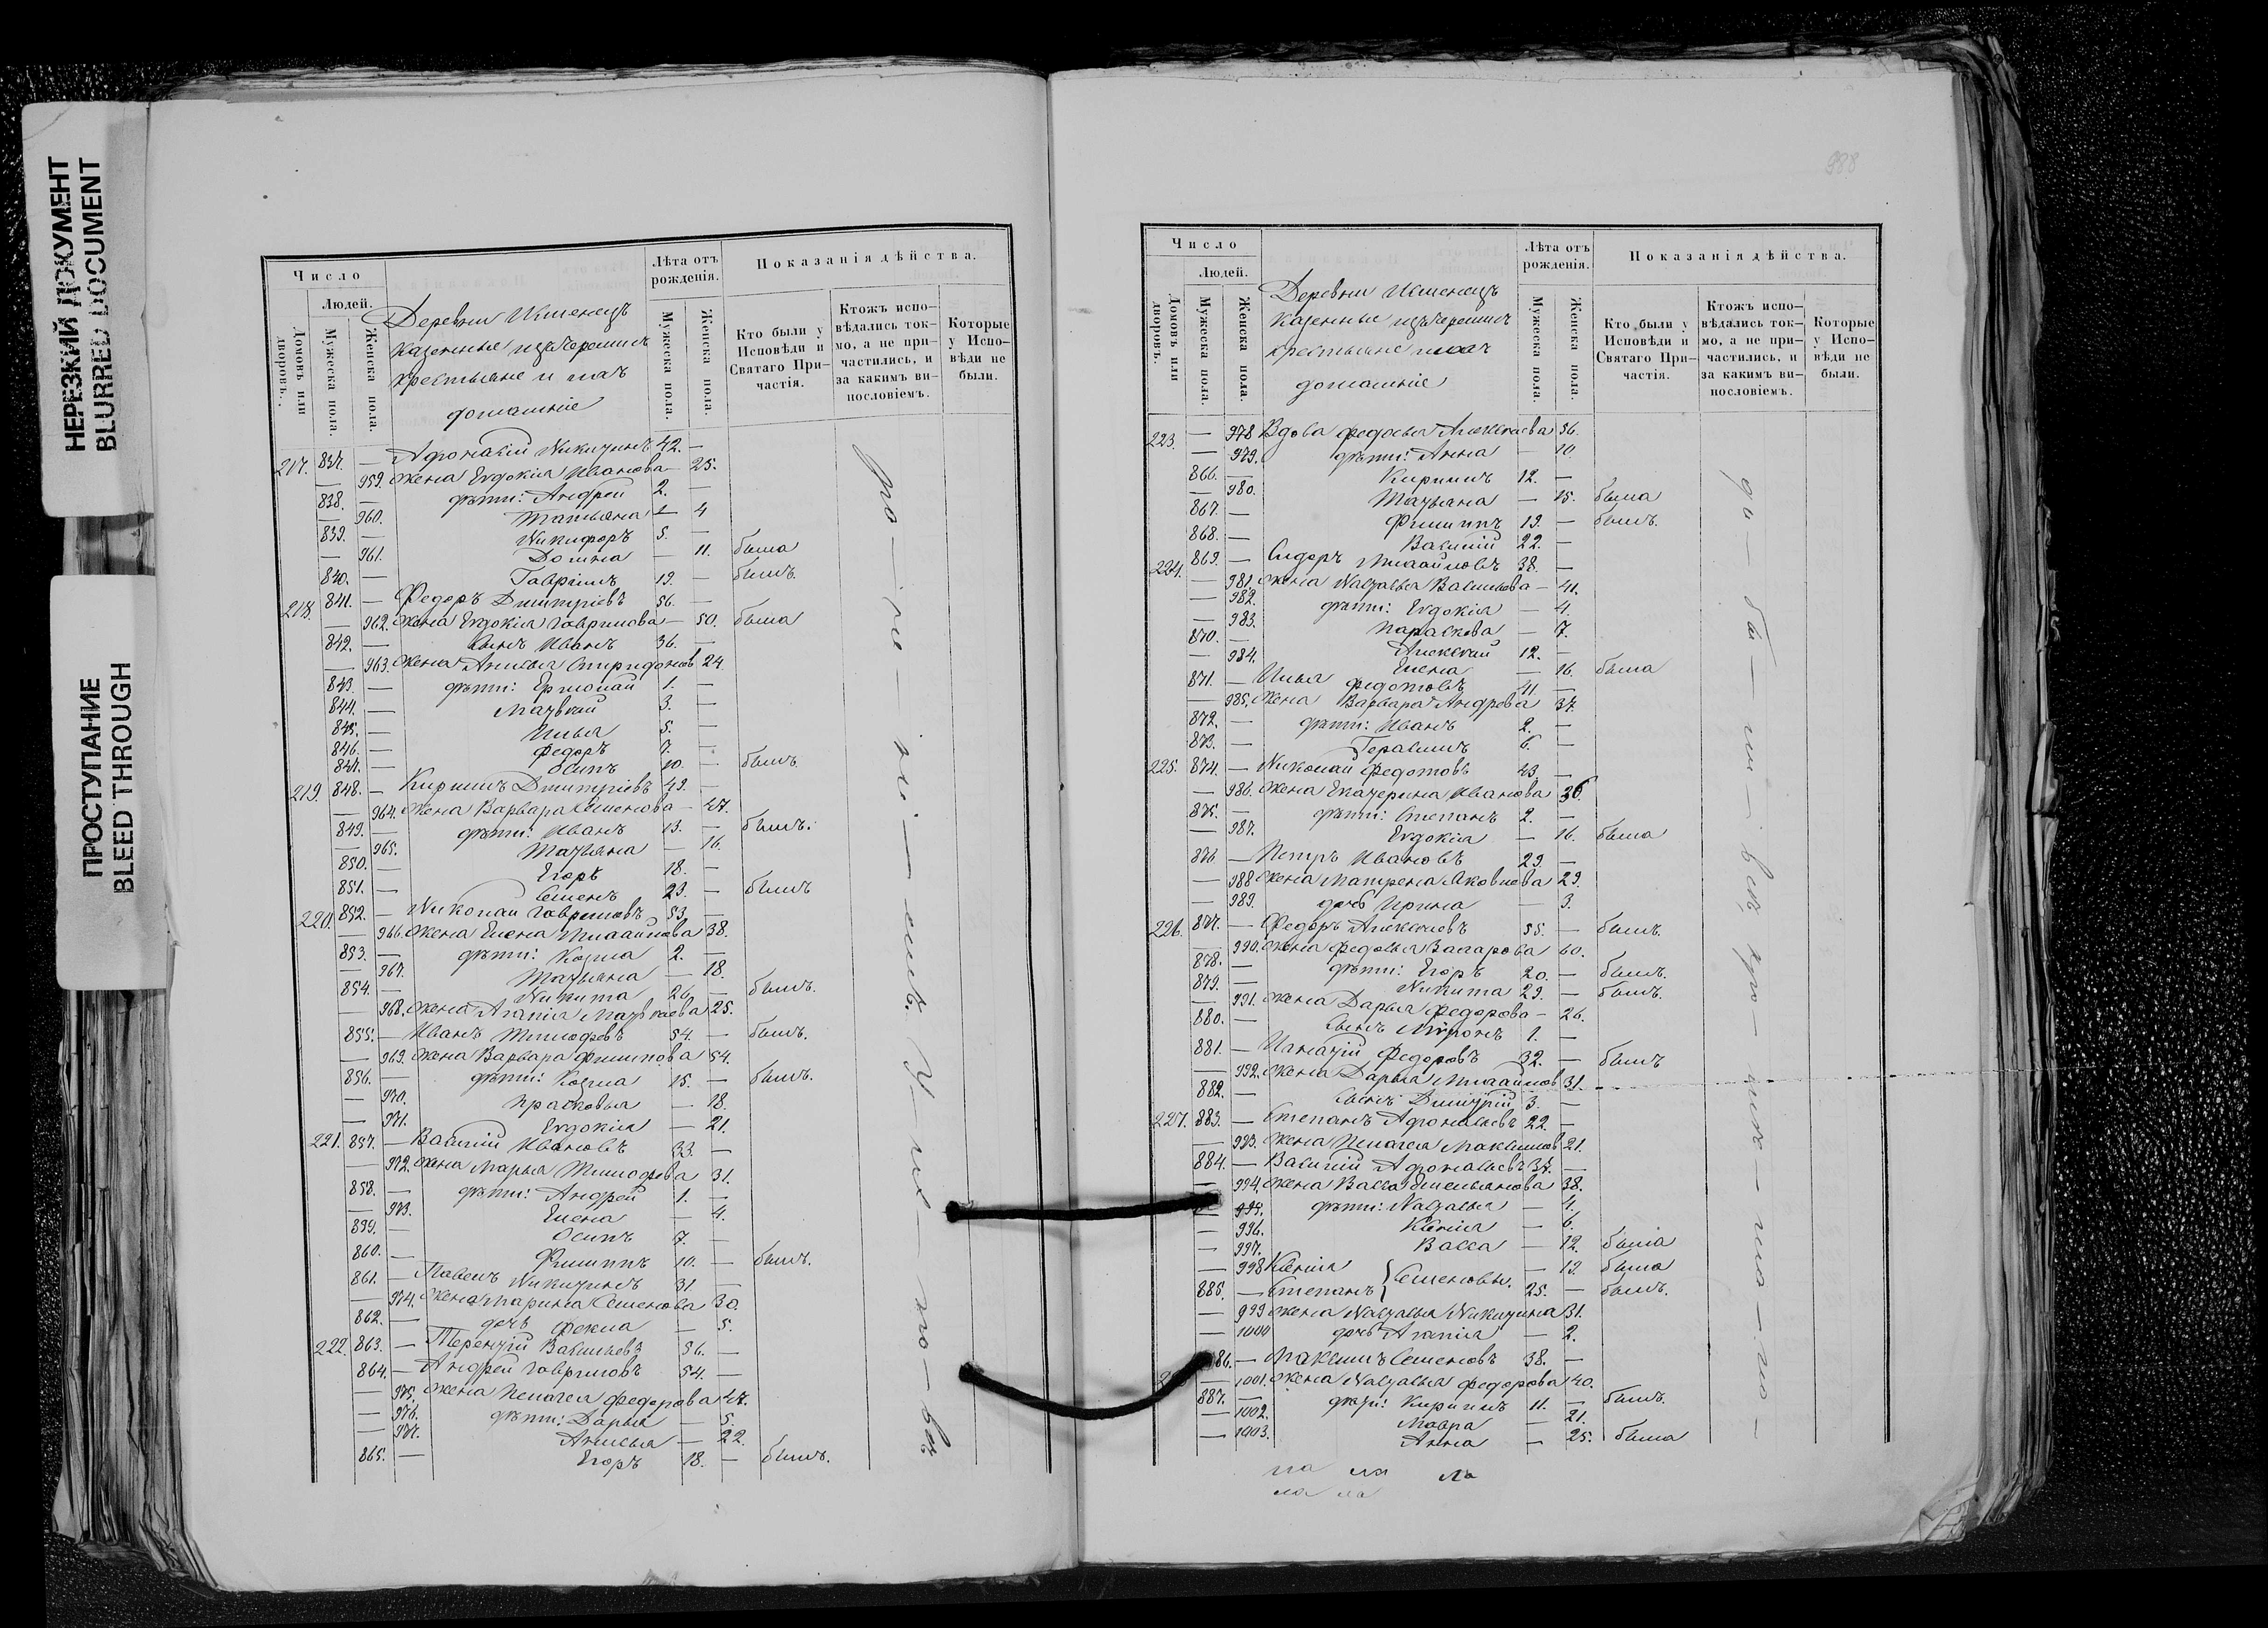 НЕРЕЗКИЙ ДОКУМЕНТ
BLURRED DOCUMENT
ПРОСТУПАНИЕ
BLEED THROUGH
Число
Людей.
Домовъ или дворовъ.
Мужеска пола.
Женска пола.
Деревни
казенные
крестьяне и ихъ
домашніе
Лѣта отъ рожденія.
Мужеска пола.
Женска пола.
Показанія дѣйства.
Кто были у Исповѣди и Святаго При-частія.
Ктожъ испо-вѣдались ток-мо, а не при-частились, и за какимъ ви-нословіемъ.
Которые у Испо-вѣди не были.
217. 837. — Афонасій Никитинъ 42. —
— 959. Жена Евдокія Иванова — 25.
838. — дѣти: Андрей 2. —
— 960. Татьяна — 4
839. — Никифоръ 5. —
— 961. Домна — 11. была
840. — Гаврилъ 19. — былъ.
218. 841. — Федоръ Дмитріевъ 56. —
— 962. Жена Евдокія Гаврилова — 50. была
842. — Сынъ Иванъ 36. —
— 963. Жена Анисья Спиридонов 24.
843. — дѣти: Ермолай 1. —
844. — Матвѣй 3. —
845. — Илья 5. —
846. — Федоръ 7. —
847. — Осипъ 10. — былъ
219. 848. — Кирилъ Дмитріевъ 49. —
— 964. Жена Варвара Семенова — 47.
849. — дѣти: Иванъ 13. — былъ.
— 965. Татьяна — 16.
850. — Егоръ 18. —
851. — Семенъ 23. — былъ
220. 852. — Николай Гавриловъ 53. —
— 966. Жена Елена Михайлова 38.
853. — дѣти: Козма 2. —
— 967. Татьяна — 18.
854. — Никита 26. — былъ.
— 968. Жена Агапія Матвѣева 25.
855. — Иванъ Тимофѣевъ 54. — былъ.
— 969. Жена Варвара Филипова 54.
856. — дѣти: Козма 15. — былъ.
— 970. Прасковья — 18.
— 971. Евдокія — 21.
221. 857. — Василій Ивановъ 33. —
— 972. Жена Марья Тимофеева 31.
858. — дѣти: Андрей 1. —
— 973. Елена — 4.
859. — Осипъ 7. —
860. — Филиппъ 10. — былъ.
861. — Павелъ Никитинъ 31. —
— 974. Жена Марина Семенова 30.
862. — дочь Фекла — 5.
222. 863. — Терентій Васильевъ 56. —
864. — Андрей Гавриловъ 54. —
— 975. Жена Пелагея Федорова 47.
— 976. дѣти: Дарья — 5.
— 977. Анисья — 22.
865. — Егоръ 18. — былъ.
988
Число
Людей.
Домовъ или дворовъ.
Мужеска пола.
Женска пола.
Деревни
казенные
крестьяне
домашніе
Лѣта отъ рожденія.
Мужеска пола.
Женска пола.
Показанія дѣйства.
Кто были у Исповѣди и Святаго При-частія.
Ктожъ испо-вѣдались ток-мо, а не при-частились, и за какимъ ви-нословіемъ.
Которые у Испо-вѣди не были.
223. — 978 Вдова Федосья Алексѣева 56.
— 979. дѣти: Анна — 10.
866. — Кирилъ 12. —
— 980. Татьяна — 15. была
867. — Филиппъ 19. — былъ.
868. — Василій 22. —
224. 869. — Сидоръ Михайловъ 38. —
— 981. Жена Наталья Васильева — 41.
— 982. дѣти: Евдокія — 4.
— 983. Параскева — 7.
870. — Алексѣй 12. —
— 984. Елена — 16. была
871. — Илья Федотовъ 41. —
— 985. Жена Варвара Андреева 37.
872. — дѣти: Иванъ 2. —
873. — Герасимъ 6. —
225. 874. — Николай Федотовъ 43. —
— 986. Жена Екатерина Иванова 36.
875. — дѣти: Степанъ 2. —
— 987. Евдокія — 16. была
876. — Петръ Ивановъ 29. —
— 988 Жена Матрена Яковлева 29.
— 989. дочь Ирина — 3.
226. 877. — Федоръ Алексѣевъ 55. — былъ.
— 990. Жена Федосья Захарова 60.
878. — дѣти: Егоръ 20. — былъ.
879. — Никита 29. — былъ.
— 991. Жена Дарья Федорова — 26.
880. — Сынъ Миронъ 1. —
881. — Игнатій Федоровъ 32. — былъ
— 992. Жена Дарья Михайлов 31.
882. — Сынъ Дмитрій 3. —
227. 883. — Степанъ Афонасьевъ 22. —
— 993. Жена Пелагея Максимов 21.
884. — Василій Афонасьевъ 37. —
— 994. Жена Васса Емельянова 38.
— 995. дѣти: Наталья — 1.
— 996. Ксенія — 6.
— 997. Васса — 12. была
— 998 Ксенія — 19. была
Семеновы.
885. — Степанъ 25. — былъ.
— 999 Жена Наталья Никитина 31.
— 1000 дочь Агапія — 2.
86. — Максимъ Семеновъ 38. —
— 1001. Жена Наталья Федорова 40.
887. — дѣти: Кирилъ 11. — былъ.
— 1002. Мавра — 21.
— 1003. Анна — 25. была